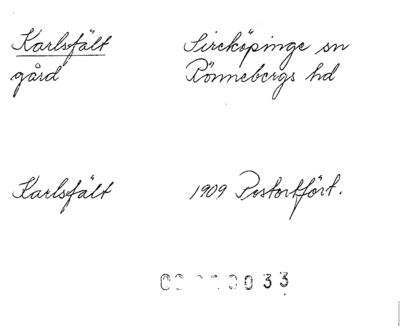 Karlsfält Sireköpinge sn
gård Rönnebergs hd
Karlsfält 1909 Postortfört.
33